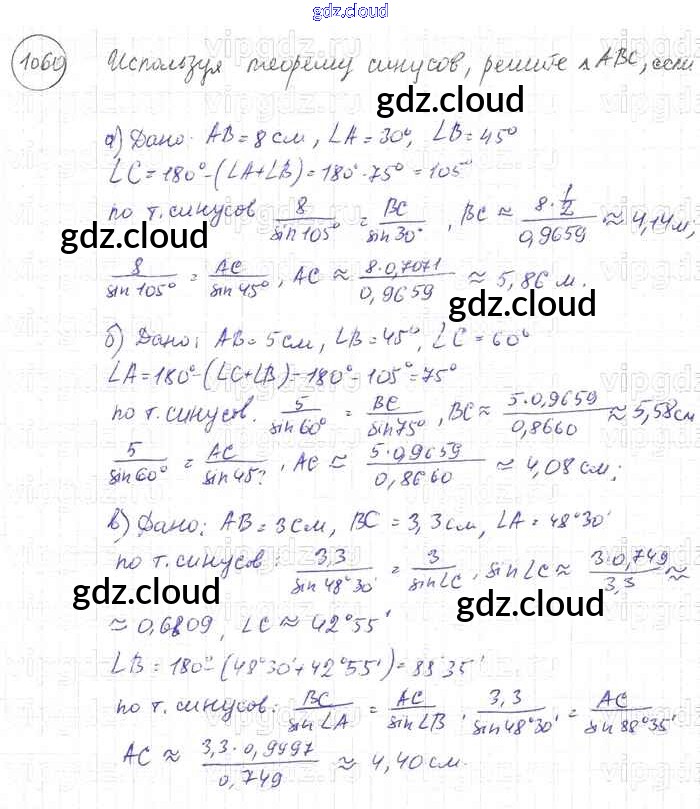 gdz.cloud
1060 Используя теорему синусов, решите △ABC, если
gdz.cloud
а) Дано: AB = 8 см, ∠A = 30°, ∠B = 45°
∠C = 180° - (∠A+∠B) = 180° - 75° = 105°
по т. синусов 8/sin105° = BC/sin30°, BC ≈ 8·1/2/0,9659 ≈ 4,14 м,
gdz.cloud
8/sin105° = AC/sin45°, AC ≈ 8·0,7071/0,9659 ≈ 5,86 м.
gdz.cloud
б) Дано: AB = 5 см, ∠B = 45°, ∠C = 60°
∠A = 180° - (∠C+∠B) = 180° - 105° = 75°
по т. синусов. 5/sin60° = BC/sin75°, BC ≈ 5·0,9659/0,8660 ≈ 5,58 см
5/sin60° = AC/sin45°, AC ≈ 5·0,9659/0,8660 ≈ 4,08 см;
в) Дано: AB = 3 см, BC = 3,3 см, ∠A = 48°30'
по т. синусов: 3,3/sin48°30' = 3/sin∠C, sin∠C ≈ 3·0,749/3,3 ≈
gdz.cloud
gdz.cloud
≈ 0,6809, ∠C ≈ 42°55'
∠B = 180° - (48°30' + 42°55') = 88°35'
по т. синусов: BC/sin∠A = AC/sin∠B, 3,3/sin48°30' = AC/sin88°35'
AC ≈ 3,3·0,9997/0,749 ≈ 4,40 см.